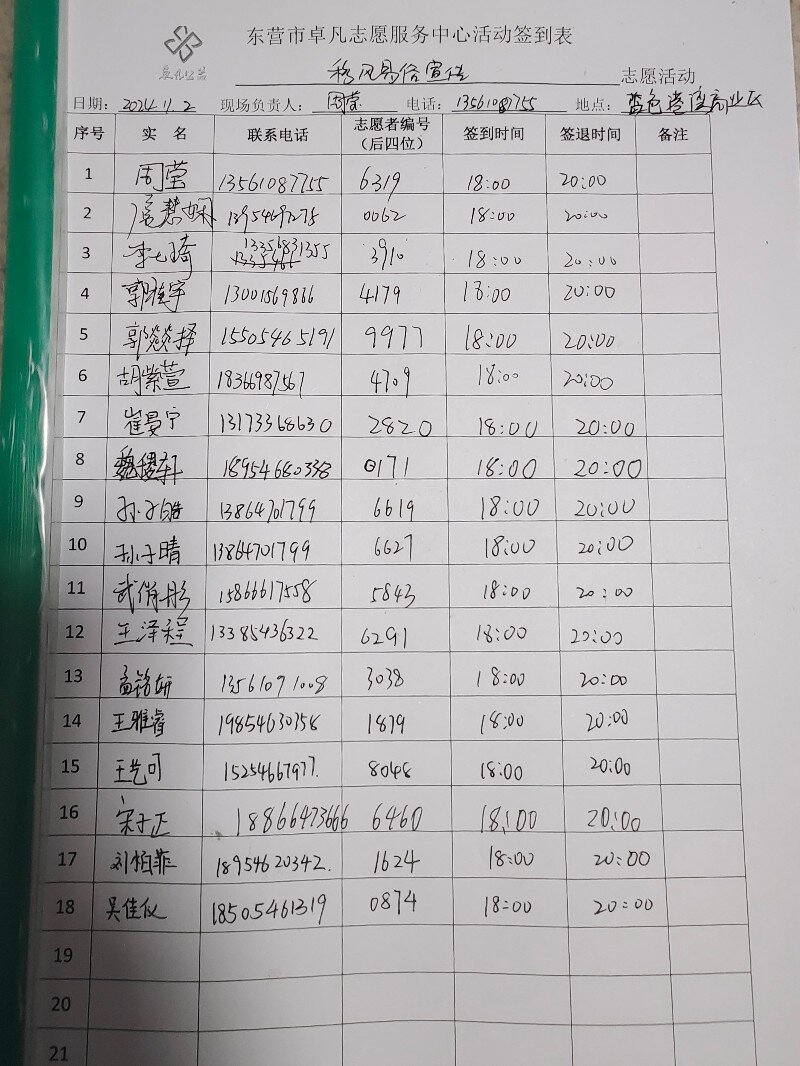 东营市卓凡志愿服务中心活动签到表
卓凡公益
移风易俗宣传 志愿活动
日期: 2024.11.2 现场负责人: 周莹 电话: 13561087755 地点: 蓝色港湾商业区
序号 实 名 联系电话 志愿者编号(后四位) 签到时间 签退时间 备注
1 周莹 13561087755 6319 18:00 20:00
2 慧娴 13954697275 0062 18:00 20:00
3 李 琦 13356831355 3910 18:00 20:00
4 郭 宇 13001569866 4179 18:00 20:00
5 郭焱择 15505465191 9977 18:00 20:00
6 胡紫萱 18366987567 4709 18:00 20:00
7 崔晏宁 13173368630 2820 18:00 20:00
8 魏 轩 18954680338 0171 18:00 20:00
9 孙子皓 13864701799 6619 18:00 20:00
10 孙子晴 13864701799 6627 18:00 20:00
11 武俏彤 15866617558 5843 18:00 20:00
12 王泽程 13385436322 6291 18:00 20:00
13 孟铭妍 13561091008 3038 18:00 20:00
14 王雅睿 19854630758 1879 18:00 20:00
15 王艺可 15254667977. 8048 18:00 20:00
16 宋子正 18866473666 6460 18:00 20:00
17 刘柏菲 18954620342. 1624 18:00 20:00
18 吴佳仪 18505461319 0874 18:00 20:00
19
20
21